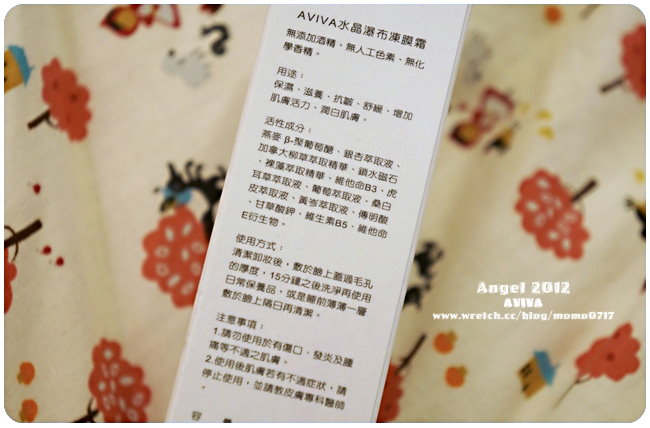 AVIVA水晶瀑布凍膜霜
無添加酒精、無人工色素、無化
學香精。
用途：
保濕、滋養、抗皺、舒緩、增加
肌膚活力、潤白肌膚。
活性成分：
燕麥 β-聚葡萄醣、銀杏萃取液、
加拿大柳草萃取精華、鎖水磁石
、裸藻萃取精華、維他命B3、虎
耳草萃取液、葡萄萃取液、桑白
皮萃取液、黃岑萃取液、傳明酸
、甘草酸鉀、維生素B5、維他命
E衍生物。
使用方式：
清潔卸妝後，敷於臉上蓋過毛孔
的厚度，15分鐘之後洗淨再使用
日常保養品，或是睡前薄薄一層
敷於臉上隔日再清潔。
注意事項：
1.請勿使用於有傷口、發炎及腫
痛等不適之肌膚。
2.使用後肌膚若有不適症狀，請
停止使用，並請教皮膚專科醫師
。
容
Angel 2012
AVIVA
www.wretch.cc/blog/momo0717